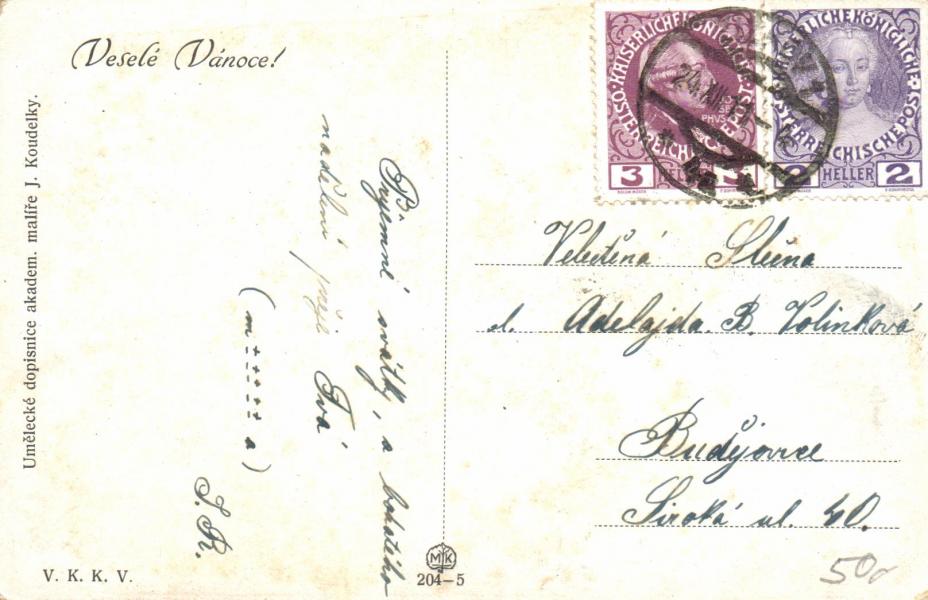 Veselé Vánoce!
Umělecké dopisnice akadem. malíře J. Koudelky.
Příjemné svátky, a bohatého
nadělení přeje
Tvá
(m ÷÷÷÷÷ a)
J. R.
V. K. K. V.
MK
204–5
KAISERLICHE KÖNIGLICHE
ÖSTERREICHISCHE POST
3 HELLER 3
KAISERLICHE KÖNIGLICHE
ÖSTERREICHISCHE POST
2 HELLER 2
24.XII.
Velectěná Slečna
sl. Adelajda B. Volinková
Budějovice
Široká ul. 40.
50,